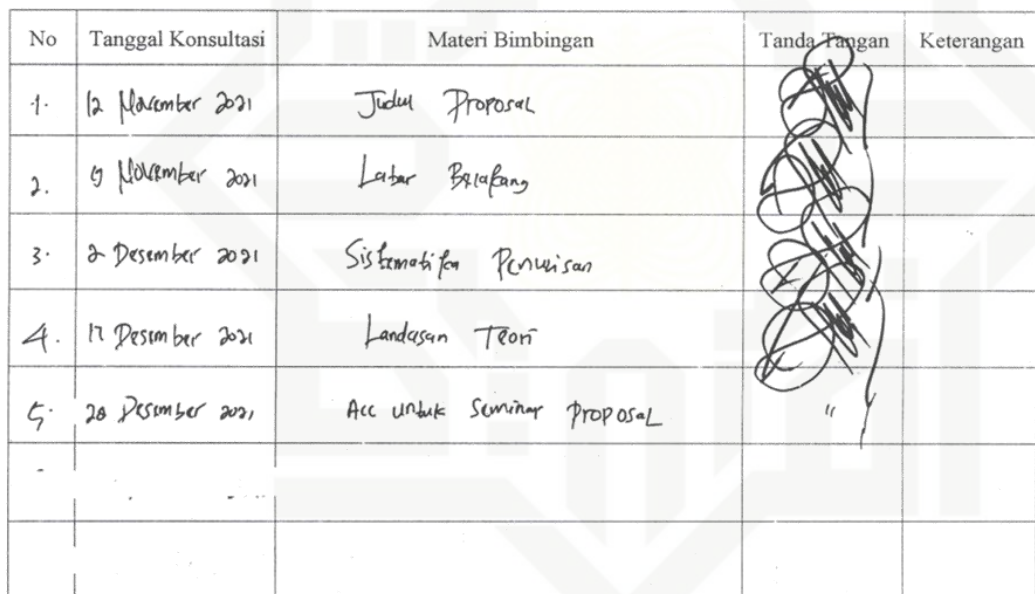 No Tanggal Konsultasi Materi Bimbingan Tanda Tangan Keterangan
1. 12 November 2021 Judul Proposal
2. November 2021 Latar Belakang
3. 2 Desember 2021 Sistematika Penulisan
4. 17 Desember 2021 Landasan Teori
5. 28 Desember 2021 Acc untuk Seminar Proposal "